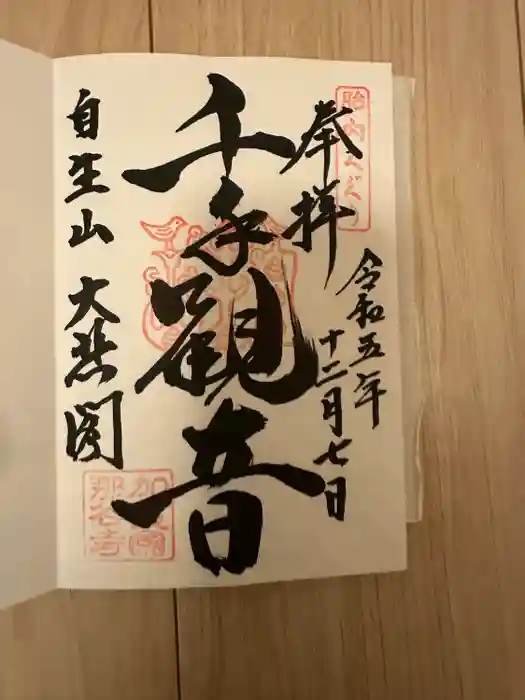 胎内くぐり
奉拝
令和五年
十二月七日
千手観音
自生山
大悲閣
加賀國
那谷寺